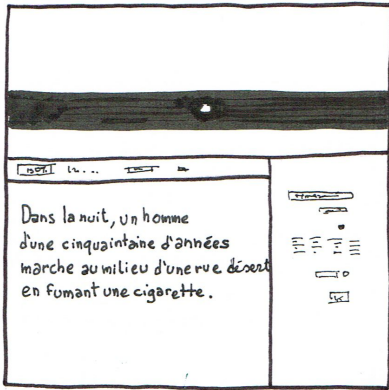 Dans la nuit, un homme
d'une cinquaintaine d'années
marche au milieu d'une rue désert
en fumant une cigarette.